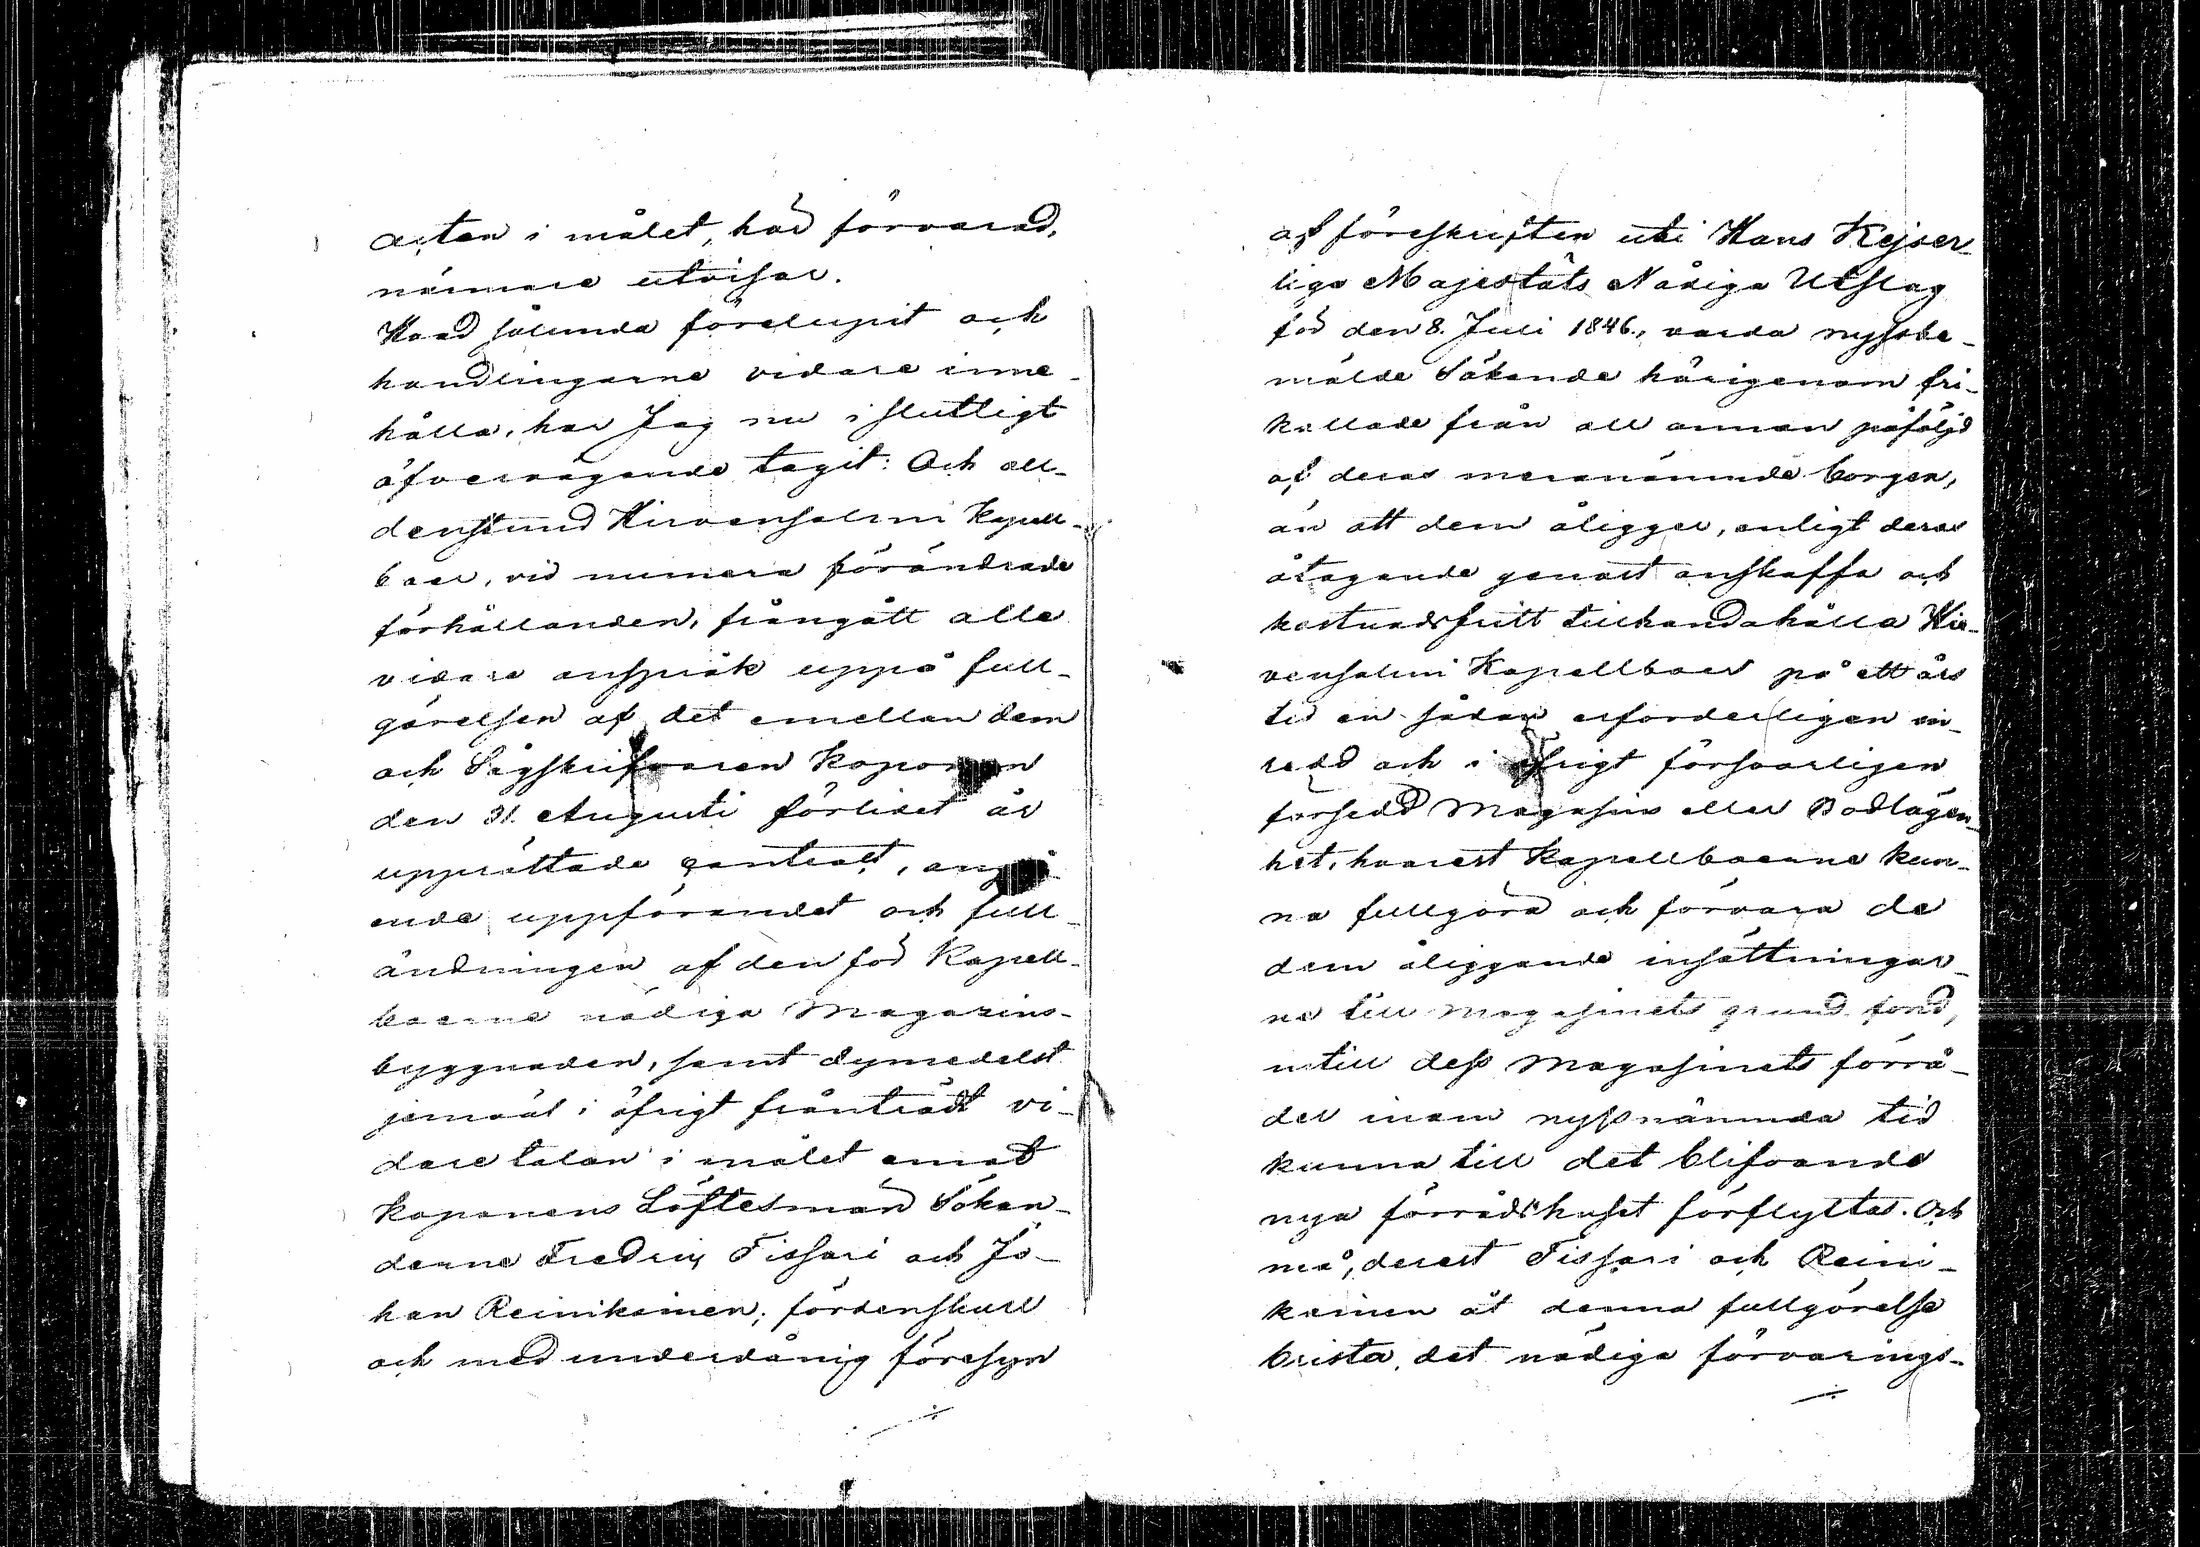 acten i målet, här förvarad,
närmare utvisar.
Hvad sålunda förelupit och
handlingarne vidare inne-
hålla, har Jag nu i slutligt
öfvervägande tagit: Och all-
denstund Hirvensalmi Kapell-
boer, vid numera förändrade
förhållanden, frångått alla
vidare anspråk uppå full-
görelsen af det emellan dem
och Sågskrifvaren Koponen
den 31. Augusti förlidet år
upprättade contract, angå-
ende uppförandet och full-
ändningen af den för Kapell-
boerne nödiga Magazins-
byggnaden, samt dymedelst
jemväl i öfrigt frånträdt vi-
dare talan i målet emot
Koponens Löftesmän Sökan-
derne Fredric Tissari och Jo-
han Reinikainen; fördenskull
och med underdånig föresyn
af föreskriften uti Hans Kejser-
liga Majestäts Nådiga Utslag
för den 8. Juli 1846., varda nyssbe-
mälde Sökande härigenom fri-
kallade från all annan påföljd
af deras meranämnde borgen,
än att dem åligger, enligt deras
åtagande genast anskaffa och
kostnadsfritt tillhandahålla Hir-
vensalmi Kapellboer på ett års
tid en sådan erforderligen in-
redd och i öfrigt försvarligen
försedd Magasins eller Bodlägen-
het, hvarest Kapellboerne kun-
na fullgöra och förvara de
dem åliggande insättningar-
ne till Magasinets grund fond,
intill dess Magasinets förrå-
der inom nyssnämnda tid
kunna till det blifvande
nya förrådshuset förflyttas. Och
må, derest Tissari och Reini-
kainen åt denna fullgörelse
brista, det nödiga förvarings-